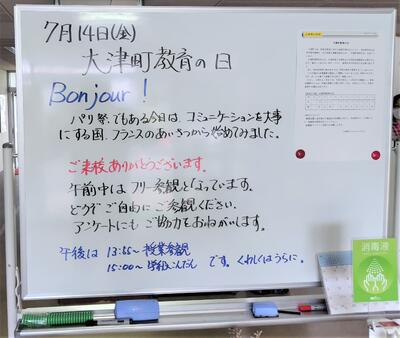 7月14日(金)
大津町教育の日
Bonjour!
パリ祭でもある今日は、コミュニケーションを大事
にする国、フランスのあいさつから始めてみました。
ご来校、ありがとうございます。
午前中はフリー参観となっています。
どうぞご自由にご参観ください。
アンケートにもご協力をおねがいします。
午後は 13:55~ 授業参観
15:00~ 学級こんだん です。くわしくはうらに。
消毒液